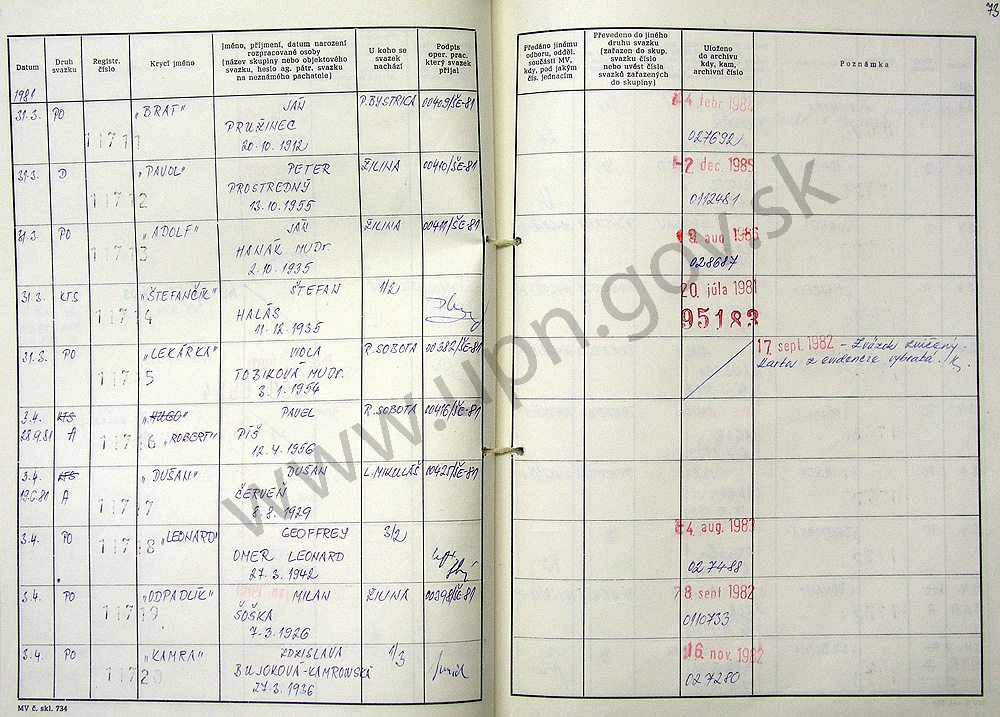 73
Datum
Druh svazku
Registr. číslo
Krycí jméno
Jméno, příjmení, datum narození rozpracované osoby (název skupiny nebo objektového svazku, heslo ag. pátr. svazku na neznámého pachatele)
U koho se svazek nachází
Podpis oper. prac. který svazek přijal
Předáno jinému odboru, odděl. součásti MV, kdy, pod jakým čís. jednacím
Převedeno do jiného druhu svazku (zařazen do skup. svazku číslo nebo uvést čísla svazků zařazených do skupiny)
Uloženo do archivu kdy, kam, archivní číslo
Poznámka
1981
31.3. PO 11711 "BRAT" JÁN P.BYSTRICA 00409/ŠE-81 4 febr. 1984
PRUŽINEC
20.10.1912 027692
31.3. D 11712 "PAVOL" PETER ŽILINA 00410/ŠE-81 2 dec. 1985
PROSTREDNÝ
13.10.1955 0112481
31.3. PO 11713 "ADOLF" JÁN ŽILINA 00411/ŠE-81 auo 1986
HANÁK MUDr
2.10.1935 028687
31.3. KTS 11714 "ŠTEFANČÍK" ŠTEFAN 1/2 20. júla 1981
HALÁS 95183
11.12.1935
31.3. PO 11715 "LEKÁRKA" VIOLA R.SOBOTA 00382/ŠE-81 17. sept. 1982 - Zväzok zničený.
TOBIKOVÁ MUDr. Kartos z evidencie vybratá.
3.1.1954
3.4. KTS "HUGO" PAVEL R.SOBOTA 00416/ŠE-81
28.9.81 A 11716 "ROBERT" PÍŠ
12.4.1956
3.4. KTS "DUŠAN" DUŠAN L.MIKULÁŠ 00425/ŠE-81
19.6.81 A 11717 ČERVEŇ
8.8.1929
3.4. PO 11718 "LEONARD" GEOFFREY 3/2 4. aug. 1983
OMER LEONARD
27.3.1942 027488
3.4. PO 11719 "ODPADLÍK" MILAN ŽILINA 00398/ŠE-81 8 sept 1982
ŠOŠKA 0110733
7.3.1926
3.4. PO 11720 "KAMRA" ZDZISLAVA 1/3 16 nov. 1982
BUJOKOVÁ-KAMROWSKÁ 027280
27.3.1936
MV č. skl. 734
www.upn.gov.sk